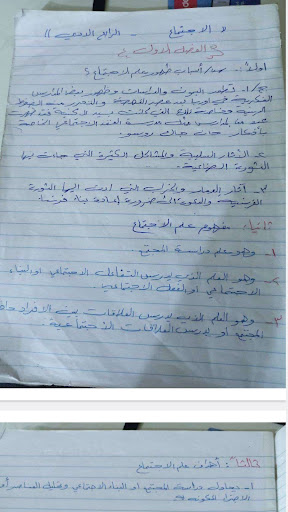 د/ الاجتماع - الرابع الادبي //
الفصل الاول
اولاً: س/ اسباب ظهور علم الاجتماع؟
ج/ ١- تطور البحوث والدراسات وظهور بعض المدارس
الفكرية في اوربا بعد عصر النهضة والتحرر من الضغوط
الدينية وخاصة تلك التي كانت بيد الكنيسة فظهرت
مدرسة العقد الاجتماعي الخاصة
بأفكار جان جاك روسو.
٢- الآثار السلبية والمشاكل الكثيرة التي جاءت بها
الثورة الصناعية.
٣- آثار الدمار والخراب التي ادت اليها الثورة
الفرنسية والدعوة الى ضرورة اعادة بناء فرنسا.
ثانياً: مفهوم علم الاجتماع
١- وهو علم دراسة المجتمع.
٢- وهو العلم الذي يدرس التفاعل الاجتماعي او البناء
الاجتماعي او الفعل الاجتماعي.
٣- وهو العلم الذي يدرس العلاقات بين الافراد داخل
المجتمع او يدرس العلاقات الاجتماعية.
ثالثاً: أهداف علم الاجتماع
١- يحاول دراسة المجتمع او البناء الاجتماعي وتحليل العناصر أو
الاجزاء المكونة له